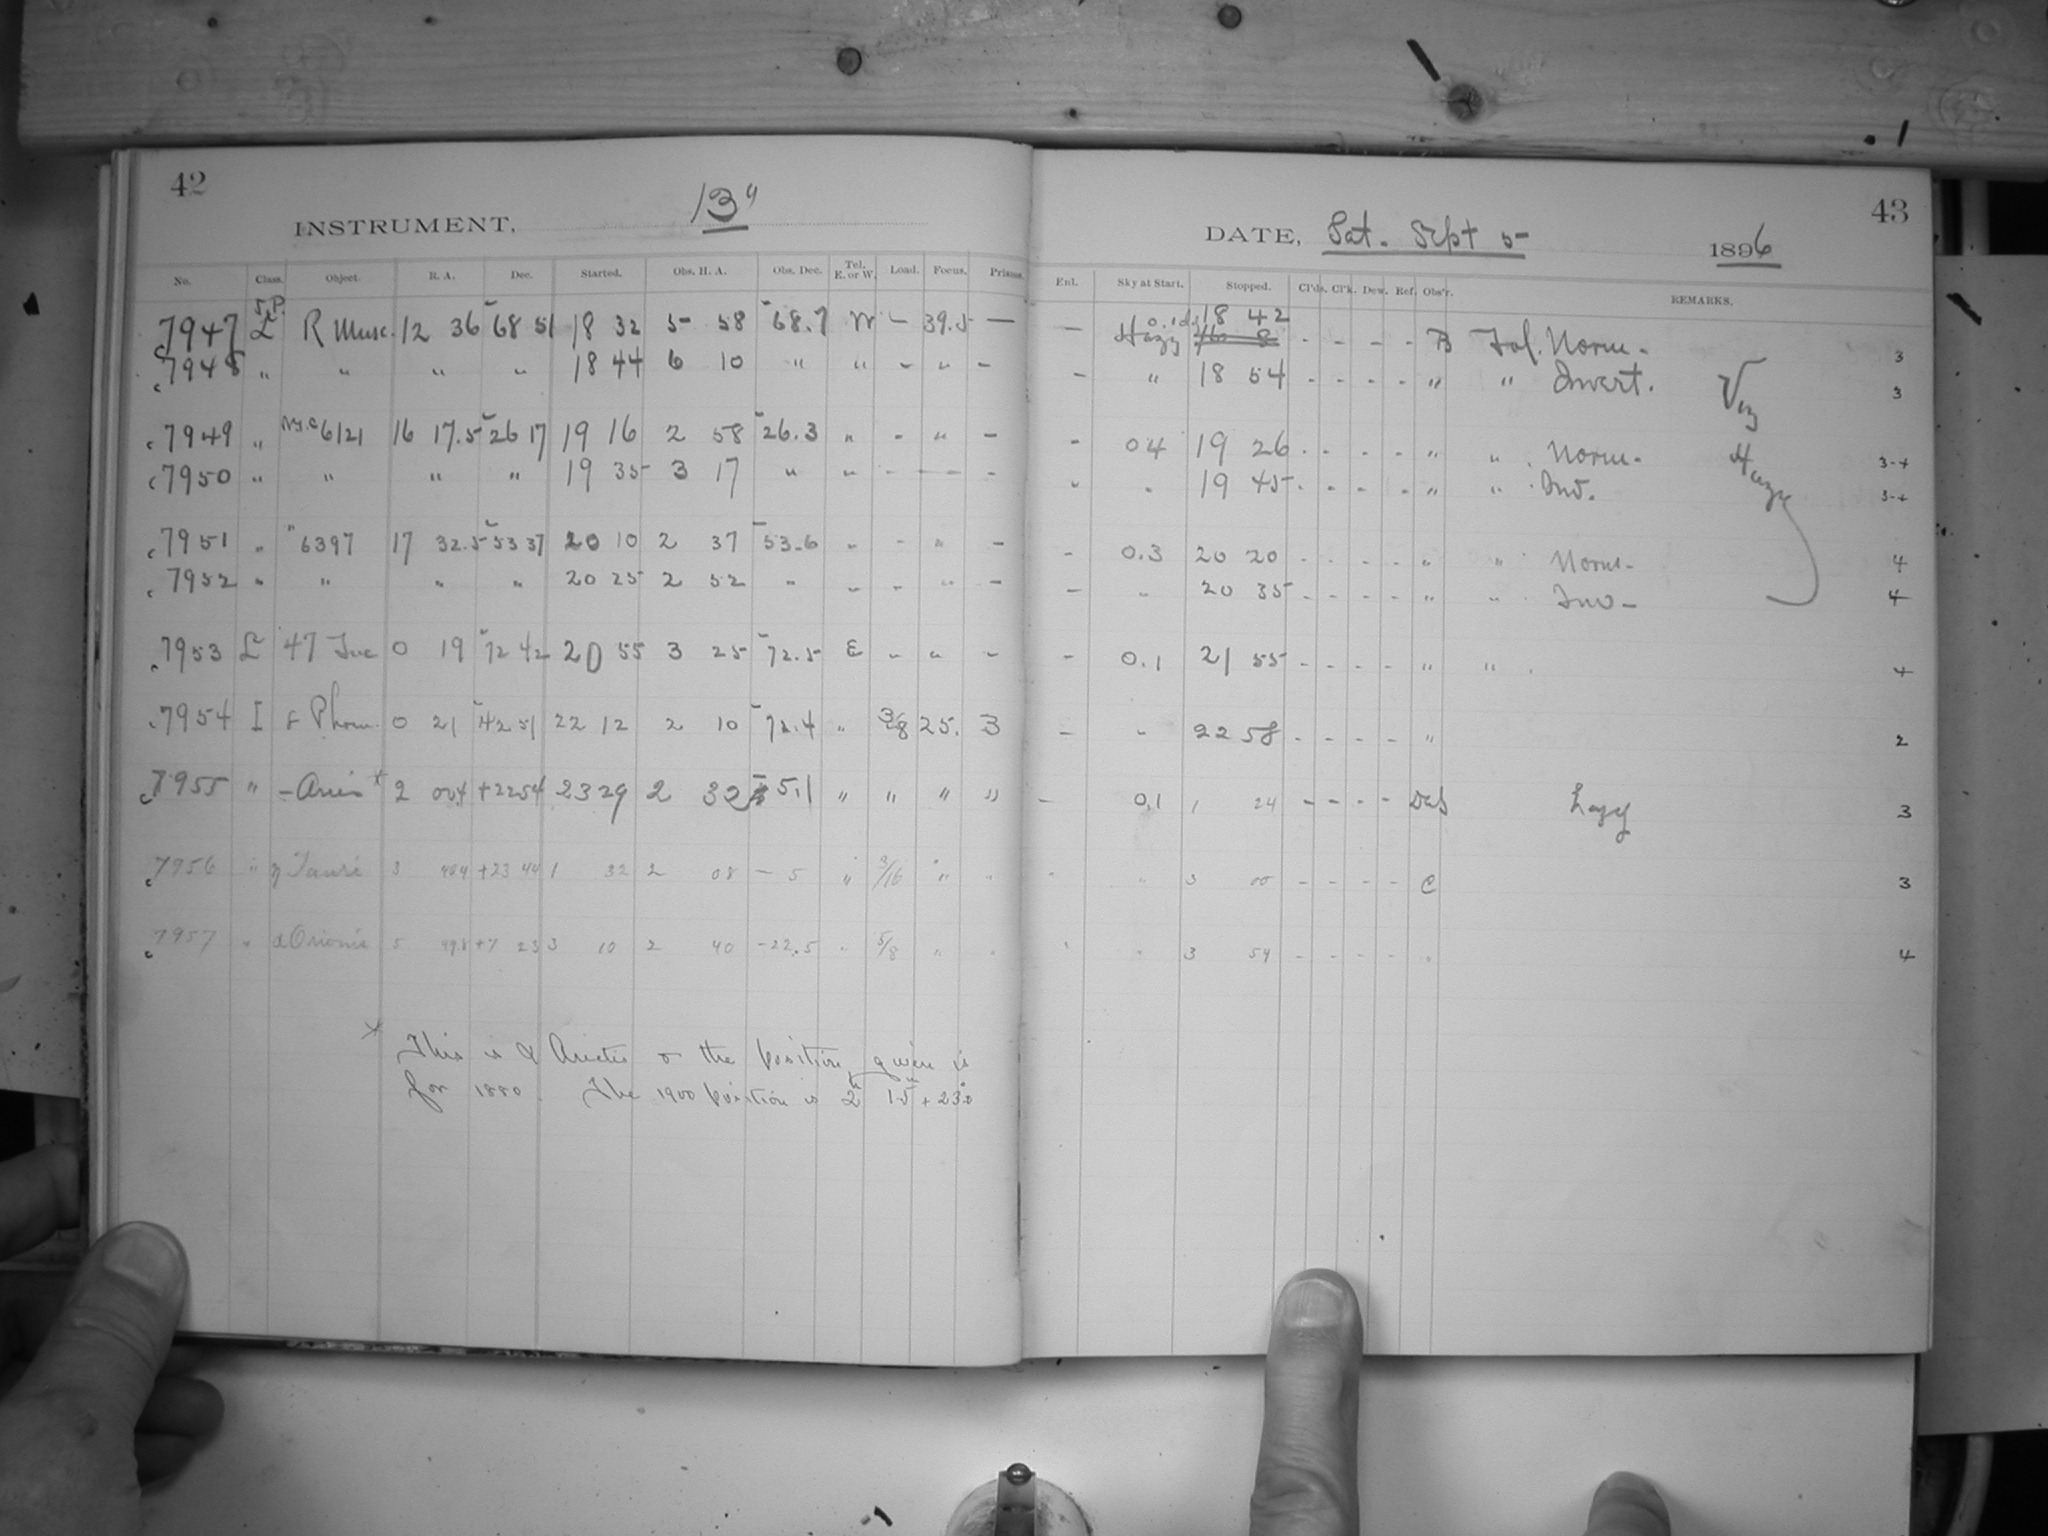 42
INSTRUMENT, 13"
No. Class. Object. R. A. Dec. Started. Obs. H. A. Obs. Dec. Tel. E. or W. Load. Focus. Prisms.
S.P.
7947 L R Musc. 12 36 -68 51 18 32 5 58 -68.7 W - 39.5 -
7948 " " " " 18 44 6 10 " " - " -
7949 " N.G.C 6121 16 17.5 -26 17 19 16 2 58 -26.3 " - " -
7950 " " " " 19 35 3 17 " " - - -
7951 " " 6397 17 32.5 -53 37 20 10 2 37 -53.6 " - " -
7952 " " " " 20 25 2 52 " " - " -
7953 L 47 Tuc 0 19 -72 42 20 55 3 25 -72.5 E - " -
7954 I Phoen. 0 21 -42 51 22 12 2 10 -72.4 " 3/8 25. 3
7955 " - Arietis * 2 00.4 +22 54 23 29 2 32 -5.1 " " " "
7956 " η Tauri 3 40.4 +23 44 1 32 2 08 - 5 " 3/16 " "
7957 " α Orionis 5 49.8 +7 23 3 10 2 40 -22.5 " 5/8 " "
* This is α Arietis & the position given is
for 1880. The 1900 position is 2h 1.5m + 23°.0
43
DATE, Sat. Sept 5 1896
Enl. Sky at Start. Stopped. Cl'ds. Cl'k. Dew. Ref. Obs'r. REMARKS.
- Hazy 18 42 - - - - B Fol. Norm. 3
- " 18 54 - - - - " " Invert. 3
Very
Hazy
- 04 19 26 - - - - " " Norm. 3-4
" " 19 45 - - - - " " Inv. 3-4
- 0.3 20 20 - - - - " " Norm. 4
- " 20 35 - - - - " " Inv. 4
- 0.1 21 55 - - - - " " 4
- " 22 58 - - - - " 2
- 0.1 1 24 - - - - Hazy 3
- " 3 00 - - - - C 3
" " 3 54 - - - - " 4